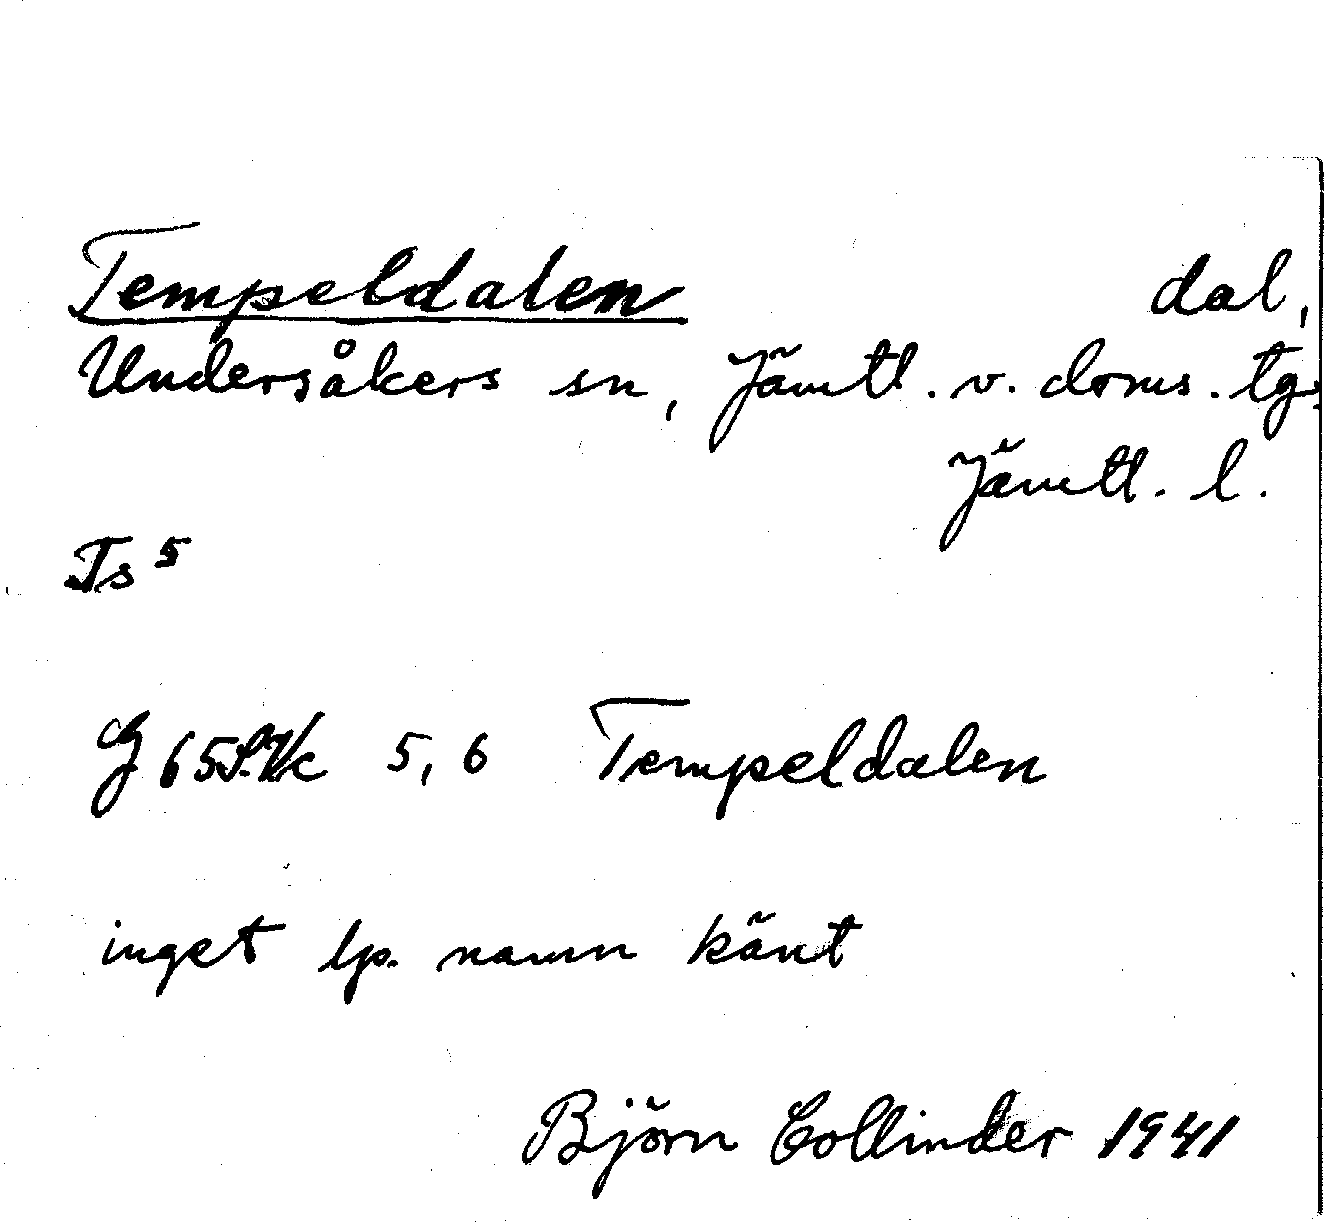 Tempeldalen dal,
Undersåkers sn, Jämtl. v. doms. tg.
Jämtl. l.
Ts 5
5, 6 Tempeldalen
inget lp. namn känt
Björn Collinder 1941